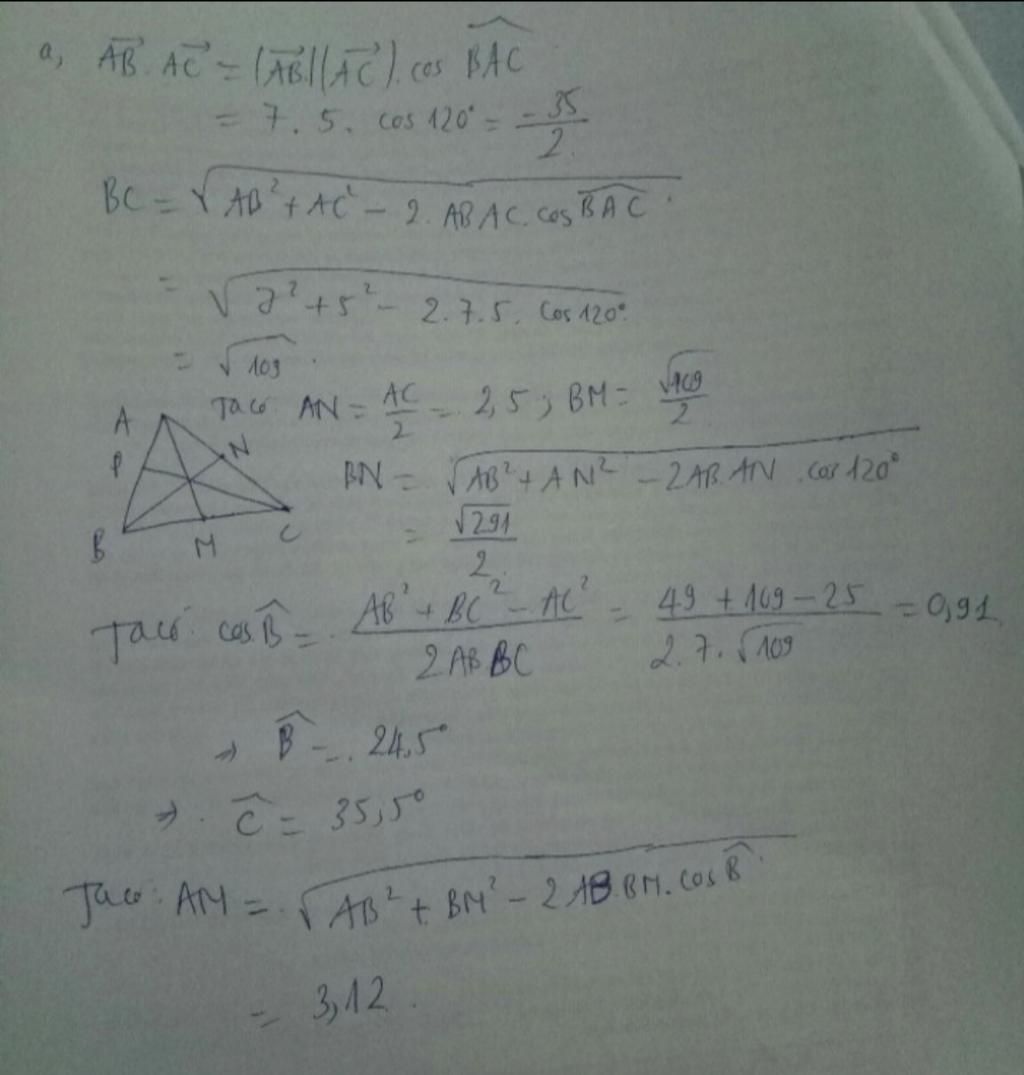 a, AB⃗. AC⃗ = |AB⃗||AC⃗|. cos BAC^
= 7. 5. cos 120° = -35/2
BC = √(AB² + AC² - 2. AB AC. cos BAC^)
= √(7² + 5² - 2. 7. 5. cos 120°)
= √109.
Ta có AN = AC/2 = 2,5; BM = √109/2
A
P
N
B
M
C
BN = √(AB² + AN² - 2AB. AN . cos 120°)
= √291/2
Ta có cos B^ = (AB² + BC² - AC²)/(2AB BC) = (49 + 109 - 25)/(2. 7. √109) = 0,91
⇒ B^ = 24,5°
⇒ C^ = 35,5°
Ta có: AM = √(AB² + BM² - 2 AB. BM. cos B^)
= 3,12.